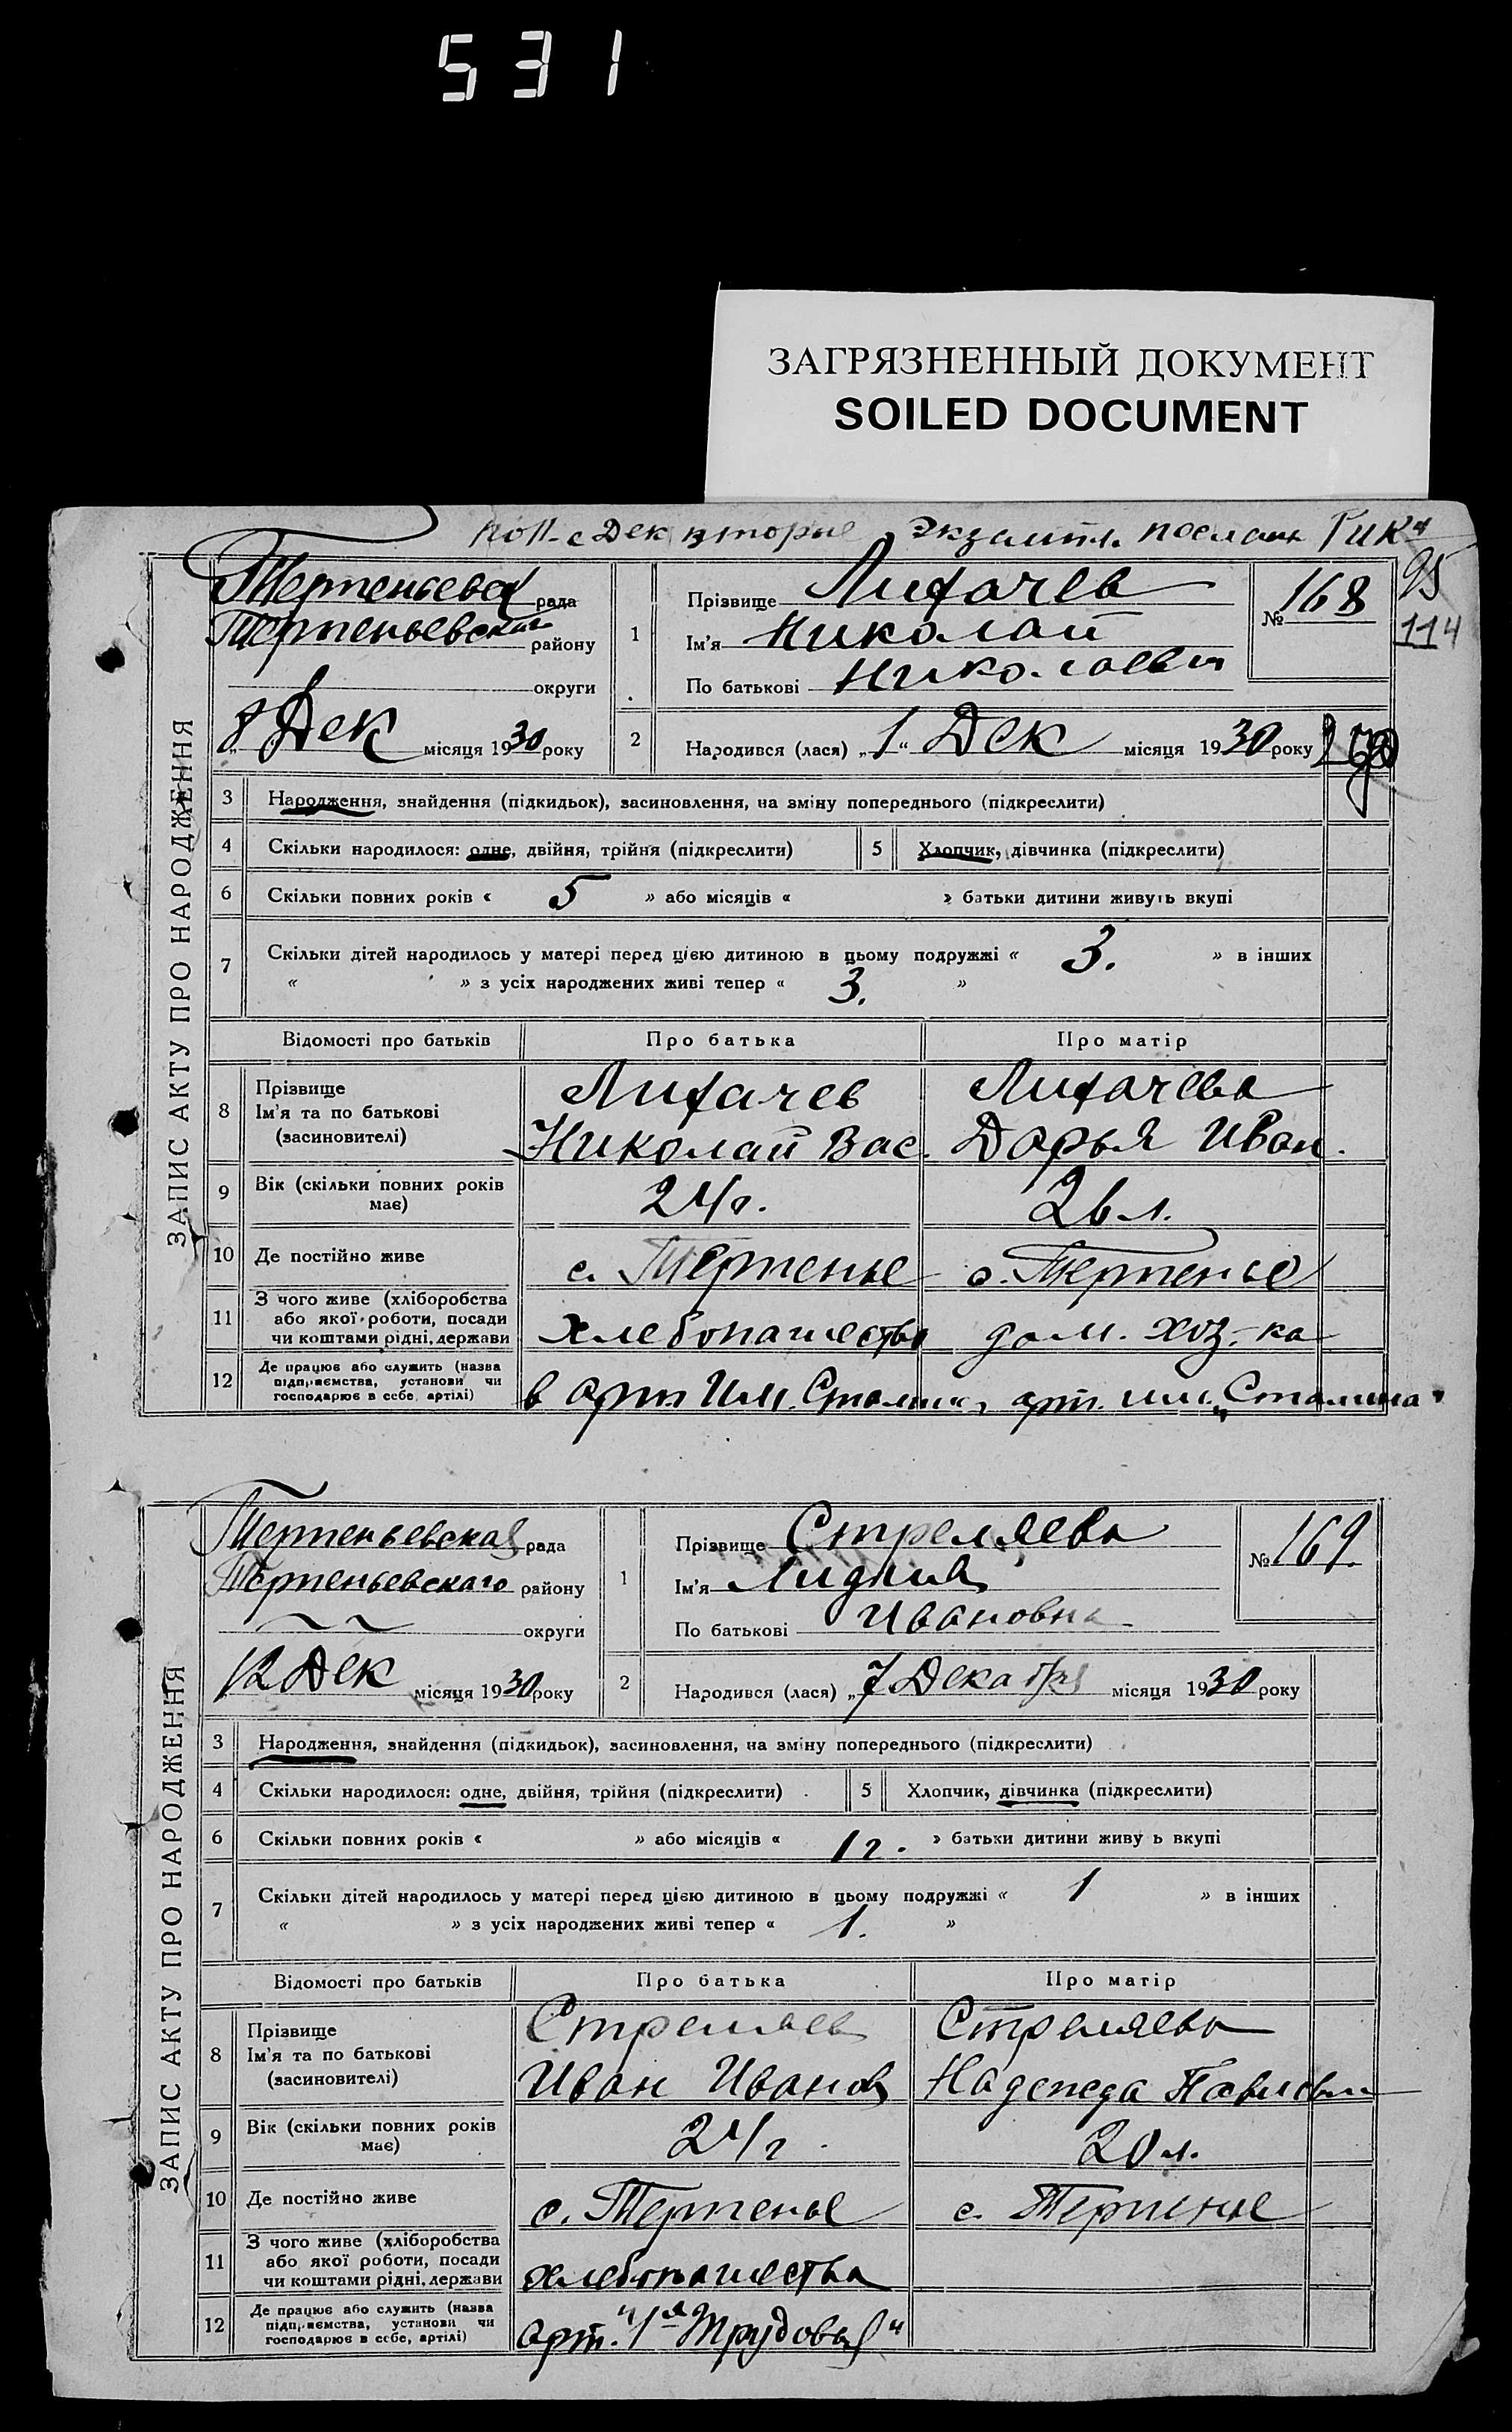 531
ЗАГРЯЗНЕННЫЙ ДОКУМЕНТ
SOILED DOCUMENT
с Дек вторые Экземпл. посланы
95
114
ЗАПИС АКТУ ПРО НАРОДЖЕННЯ
рада
Терпеньевский району
округи
8 Дек місяця 1930 року
1
Прізвище Лихачев
Ім'я Николай
По батькові Николаевич
№ 168
2
Народився (лася) „1“ Дек місяця 1930 року
3 Народження, знайдення (підкидьок), засиновлення, на зміну попереднього (підкреслити)
4 Скільки народилося: одне, двійня, трійня (підкреслити) 5 Хлопчик, дівчинка (підкреслити)
6 Скільки повних років « 5 » або місяців « » батьки дитини живуть вкупі
7 Скільки дітей народилось у матері перед цією дитиною в цьому подружжі « 3. » в інших
« » з усіх народжених живі тепер « 3. »
Відомості про батьків Про батька Про матір
8 Прізвище Ім'я та по батькові (засиновителі)
Лихачев Николай Вас.
Лихачева Дарья Иван.
9 Вік (скільки повних років має) 24 г. 26 л.
10 Де постійно живе с. Терпенье с. Терпенье
11 З чого живе (хліборобства або якої роботи, посади чи коштами рідні, держави
хлебопашество дом. хоз-ка
12 Де працює або служить (назва підприємства, установи чи господарює в себе, артілі)
в арт. Им. Сталина арт. им. „Сталина"
ЗАПИС АКТУ ПРО НАРОДЖЕННЯ
Терпеньевская рада
Терпеньевскаго району
округи
12 Дек місяця 1930 року
1
Прізвище Стреляева
Ім'я Лидия
По батькові Ивановна
№ 169.
2
Народився (лася) „7 Декабря місяця 1930 року
3 Народження, знайдення (підкидьок), засиновлення, на зміну попереднього (підкреслити)
4 Скільки народилося: одне, двійня, трійня (підкреслити) 5 Хлопчик, дівчинка (підкреслити)
6 Скільки повних років « » або місяців « 1 г. » батьки дитини живу ь вкупі
7 Скільки дітей народилось у матері перед цією дитиною в цьому подружжі « 1 » в інших
« » з усіх народжених живі тепер « 1. »
Відомості про батьків Про батька Про матір
8 Прізвище Ім'я та по батькові (засиновителі)
Стреляев Иван Иванов
Стреляева Надежда Павловна
9 Вік (скільки повних років має) 24 г. 20 л.
10 Де постійно живе с. Терпенье с. Терпенье
11 З чого живе (хліборобства або якої роботи, посади чи коштами рідні, держави
хлебопашества
12 Де працює або служить (назва підприємства, установи чи господарює в себе, артілі)
арт. "1я Трудовая"